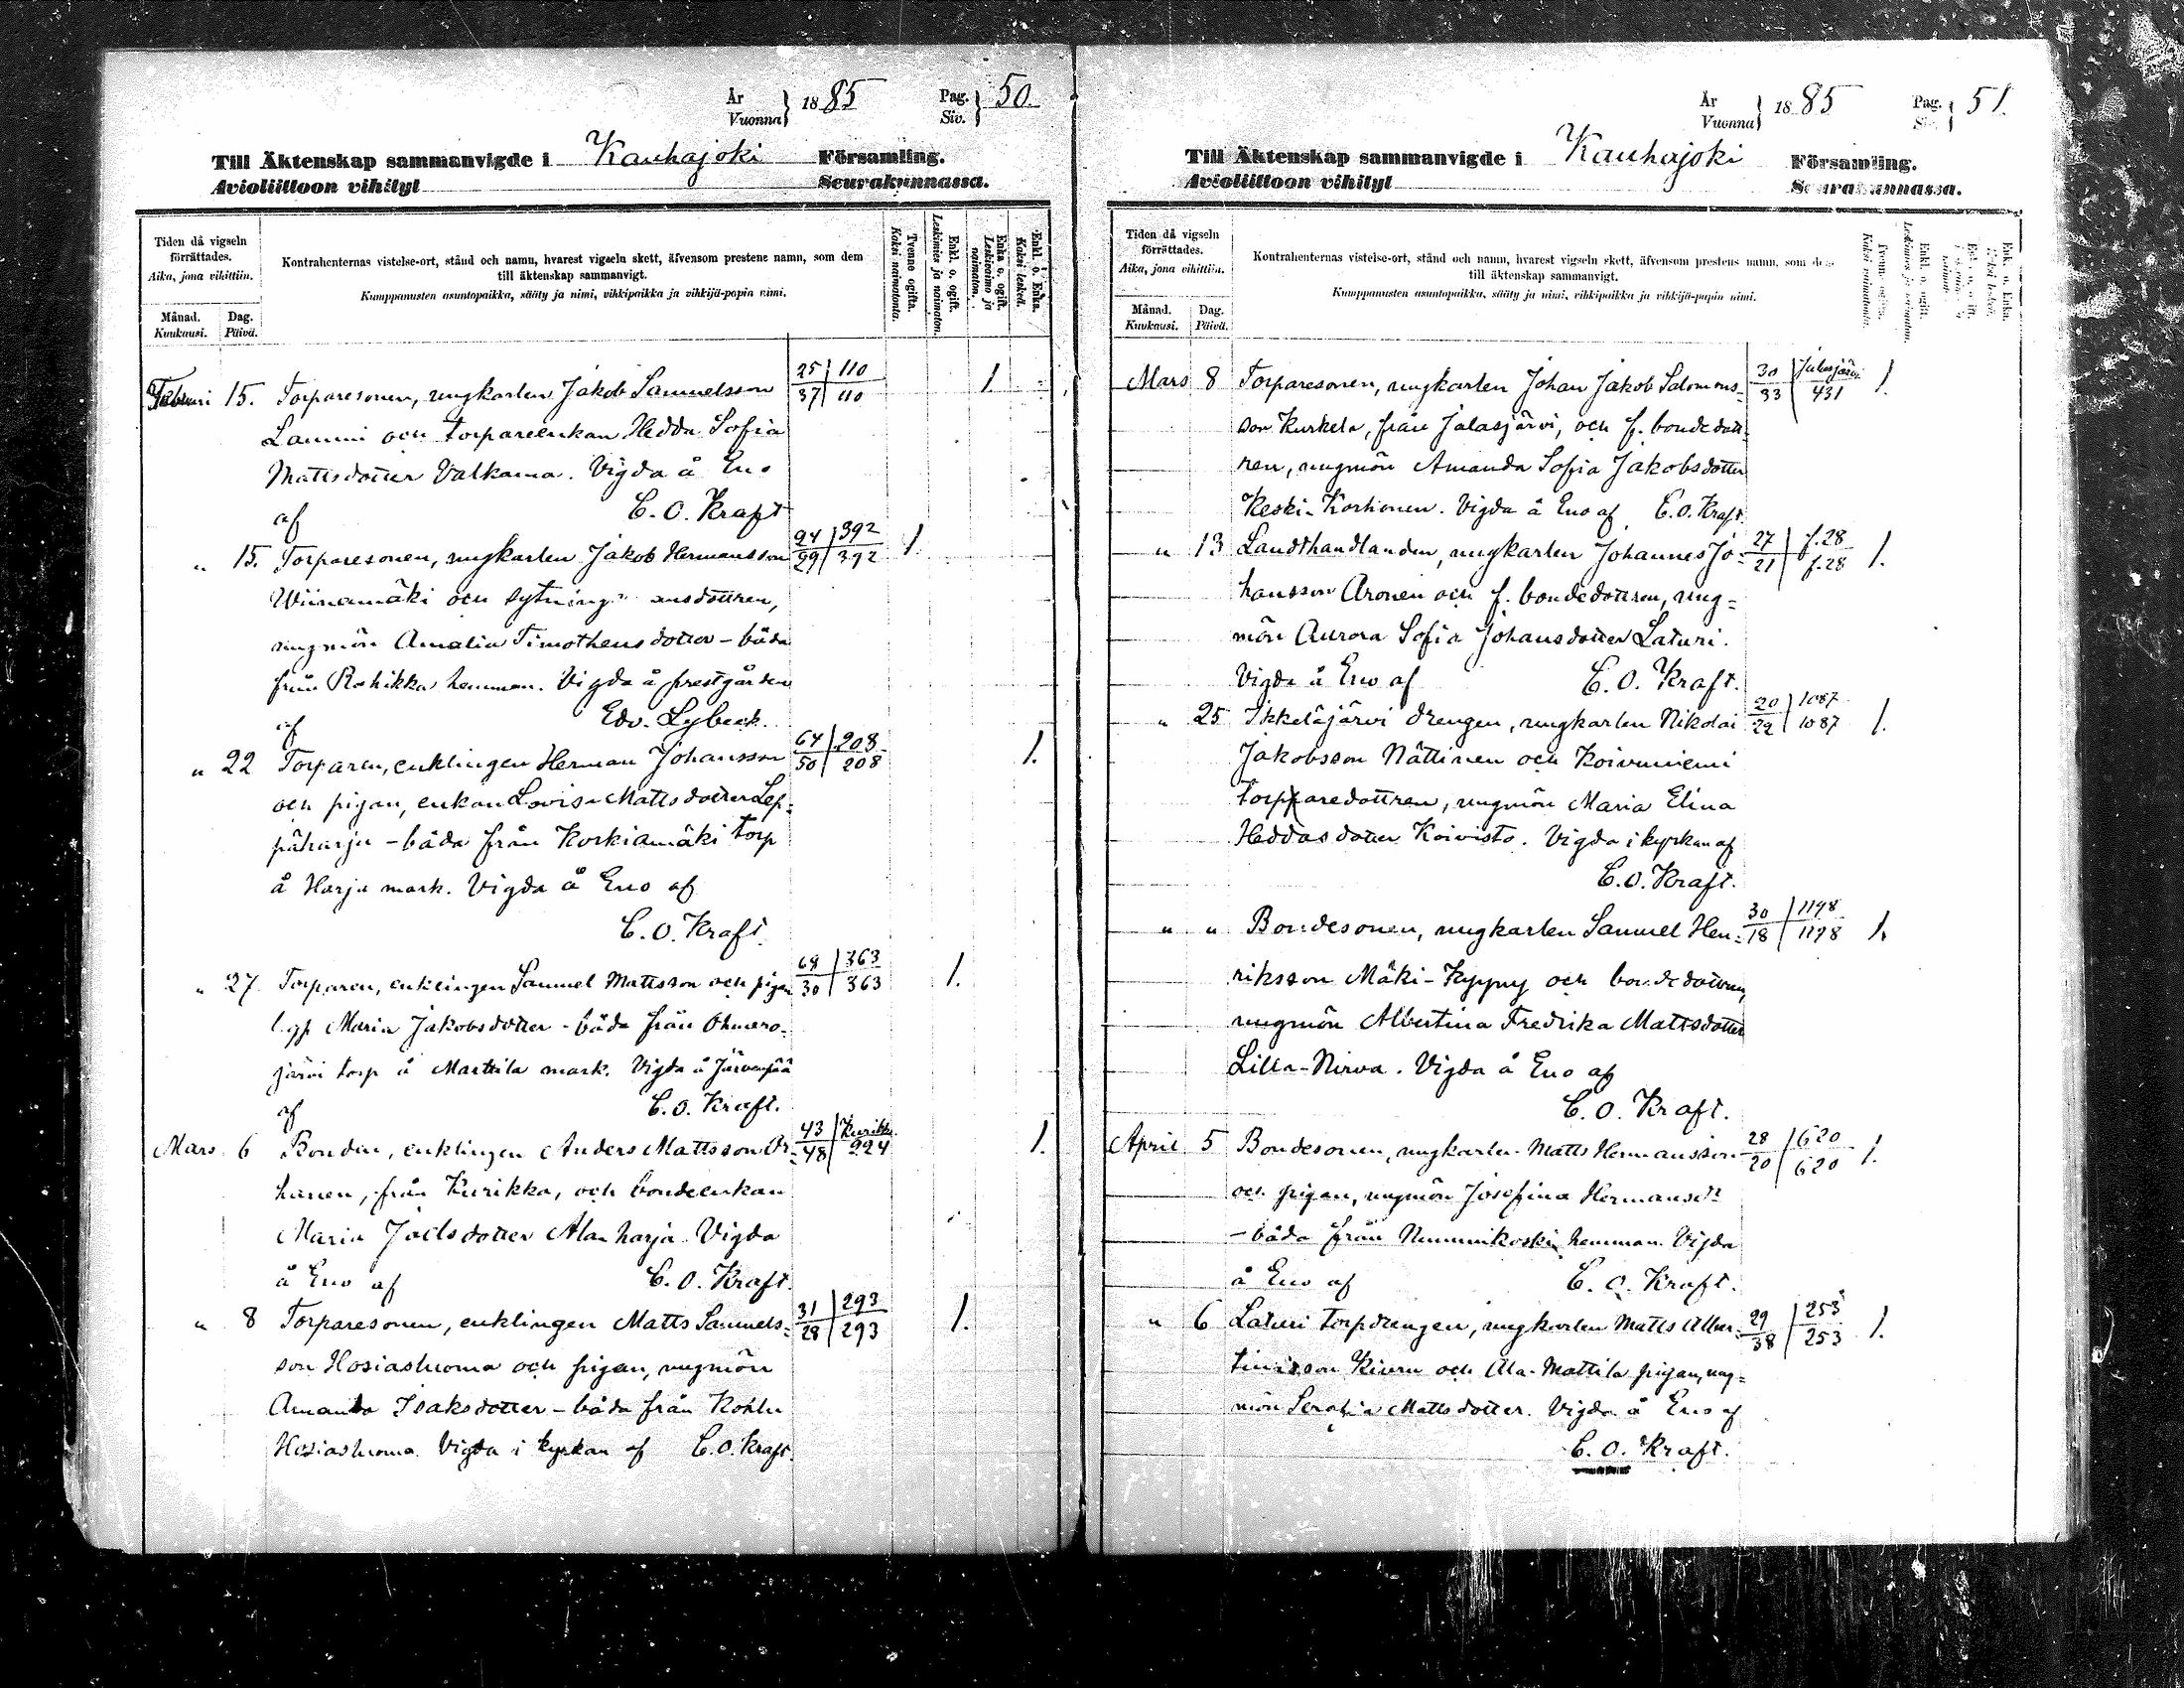 År
Vuonna } 1885
Pag.
Siv. } 50.
Till Äktenskap sammanvigde i Kauhajoki Församling.
Avioliittoon vihityt Seurakunnassa.
Tiden då vigseln
förrättades.
Aika, jona vihittiin.
Månad.
Kuukausi.
Dag.
Päivä.
Kontrahenternas vistelse-ort, stånd och namn, hvarest vigseln skett, äfvensom prestens namn, som dem
till äktenskap sammanvigt.
Kumppanusten asuntopaikka, sääty ja nimi, vihkipaikka ja vihkijä-papin nimi.
Tvenne ogifta.
Kaksi naimatonta.
Enkl. o. ogift.
Leskimies ja naimaton.
Enka o. ogift.
Leskivaimo ja
naimaton.
Enkl. o. Enka.
Kaksi leskeä.
Februari 15. Torparesonen, ungkarlen Jakob Samuelsson 25/37 110/110 1
Lammi och torpareenkan Hedda Sofia
Mattsdotter Valkama. Vigda å Eno
af C. O. Kraft
" 15. Torparesonen, ungkarlen Jakob Hermansson 24/29 392/392 1.
Wiinamäki och sytning ansdottren,
ungmön Amalia Timotheusdotter – båda
från Rahikka hemman. Vigda å prestgården
af Edv. Lybeck.
" 22 Torparen, enklingen Herman Johansson 64/50 208/208 1.
och pigan, enkan Lovisa Mattsdotter Lep=
päharju – båda från Korkiamäki torp
å Harja mark. Vigda å Eno af
C. O. Kraft.
" 27 Torparen, enklingen Samuel Mattsson och pigan 68/30 363/363 1.
l.gf Maria Jakobsdotter – båda från
järvi torp å Marttila mark. Vigda å Järvenpää
af C. O. Kraft.
Mars 6 Bonden, enklingen Anders Mattsson Or= 43/48 Kurikka/224 1.
hanen, från Kurikka, och bondeenkan
Maria Joelsdotter Alanharja. Vigda
å Eno af C. O. Kraft.
" 8 Torparesonen, enklingen Matts Samuels= 31/28 293/293 1.
son Hosiasluoma och pigan, ungmön
Amanda Isaksdotter – båda från Kohlu
Hosiasluoma. Vigda i kyrkan af C. O. Kraft.
År
Vuonna } 1885
Pag.
Siv. } 51.
Till Äktenskap sammanvigde i Kauhajoki Församling.
Avioliittoon vihityt Seurakunnassa.
Tiden då vigseln
förrättades.
Aika, jona vihittiin.
Månad.
Kuukausi.
Dag.
Päivä.
Kontrahenternas vistelse-ort, stånd och namn, hvarest vigseln skett, äfvensom prestens namn, som dem
till äktenskap sammanvigt.
Kumppanusten asuntopaikka, sääty ja nimi, vihkipaikka ja vihkijä-papin nimi.
Mars 8 Torparesonen, ungkarlen Johan Jakob Salomons= 30/33 Jalasjärvi/431 1.
son Kurkela, från Jalasjärvi, och f. bondedott=
ren, ungmön Amanda Sofia Jakobsdotter
Keski-Korhonen. Vigda å Eno af C. O. Kraft.
" 13 Landthandlanden, ungkarlen Johannes Jo= 27/21 f.28/f.28 1.
hansson Aronen och f. bondedottren, ung=
mön Aurora Sofia Johansdotter Laturi.
Vigda å Eno af C. O. Kraft.
" 25 Ikkeläjärvi drengen, ungkarlen Nikolai 20/22 1087/1087 1.
Jakobsson Nättinen och Koivuniemi
torparedottren, ungmön Maria Elina
Heddasdotter Koivisto. Vigda i kyrkan af
C. O. Kraft.
" " Bondesonen, ungkarlen Samuel Hen= 30/18 1198/1198 1.
riksson Mäki-Kyyny och bondedottren,
ungmön Albertina Fredrika Mattsdotter
Lilla-Nirva. Vigda å Eno af
C. O. Kraft.
April 5 Bondesonen, ungkarlen Matts Hermansson 28/20 620/620 1.
och pigan, ungmön Josefina Hermansdr
– båda från Nummikoski hemman. Vigda
å Eno af C. O. Kraft.
" 6 Laturi torpdrengen, ungkarlen Matts Alber= 29/38 253/253 1.
tinisson Kivru och Ala-Mattila pigan, ung=
mön Serafia Mattsdotter. Vigda å Eno af
C. O. Kraft.